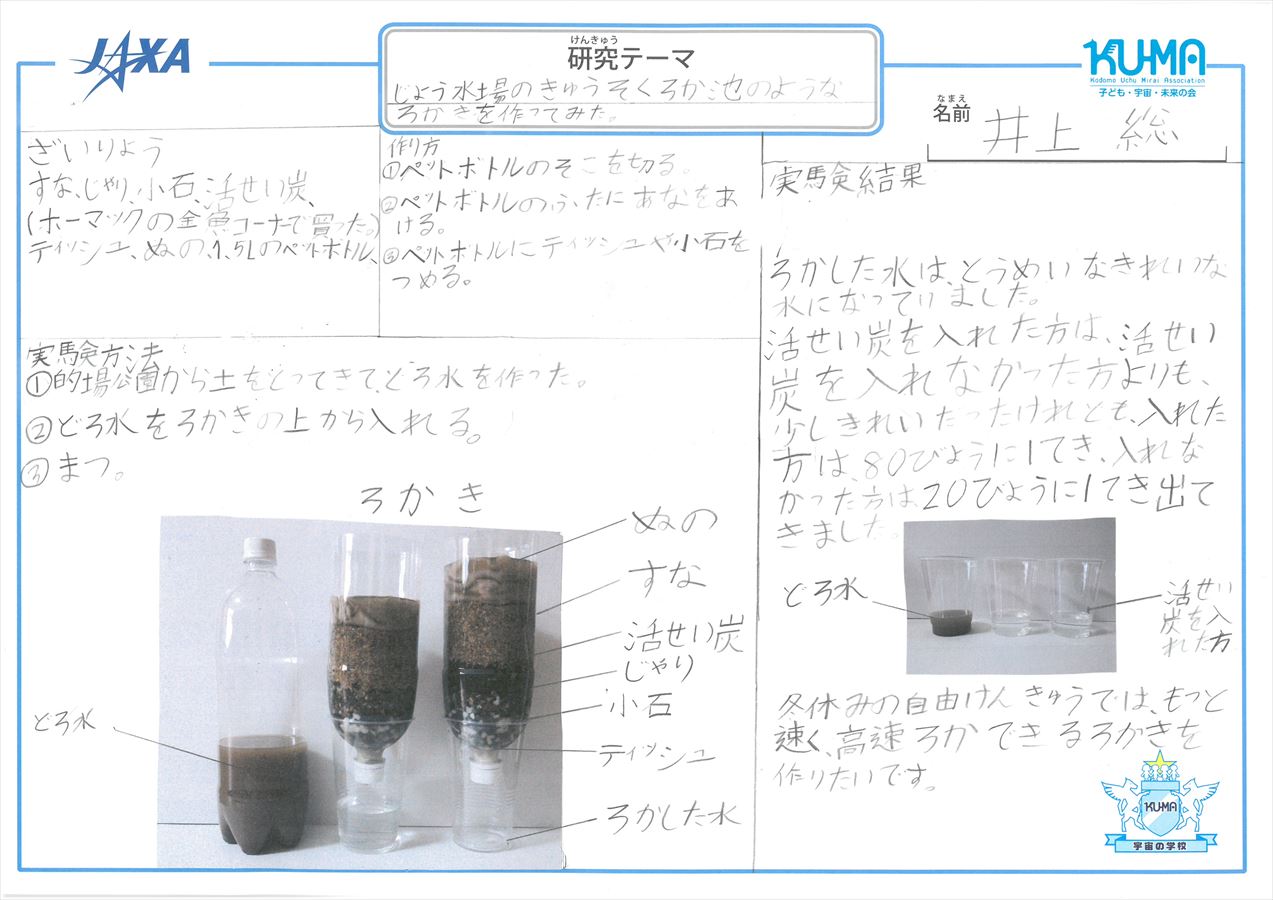 JAXA
けんきゅう
研究テーマ
じょう水場のきゅうそくろか池のような
ろかきを作ってみた。
KU-MA
Kodomo Uchu Mirai Association
子ども・宇宙・未来の会
なまえ
名前
井上 総
ざいりょう
すな、じゃり、小石、活せい炭、
(ホーマックの金魚コーナーで買った。)
ティッシュ、ぬの、1.5Lのペットボトル、
作り方
①ペットボトルのそこを切る。
②ペットボトルのふたにあなをあ
ける。
③ペットボトルにティッシュや小石を
つめる。
実験方法
①的場公園から土をとってきて、どろ水を作った。
②どろ水をろかきの上から入れる。
③まつ。
ろかき
ぬの
すな
活せい炭
じゃり
小石
ティッシュ
ろかした水
どろ水
実験結果
ろかした水は、とうめいなきれいな
水になっていました。
活せい炭を入れた方は、活せい
炭を入れなかった方よりも、
少しきれいだったけれども、入れた
方は、80びょうに1てき、入れな
かった方は、20びょうに1てき出て
きました。
どろ水
活せい
炭を入
れた方
冬休みの自由けんきゅうでは、もっと
速く、高速ろかできるろかきを
作りたいです。
KU-MA
宇宙の学校